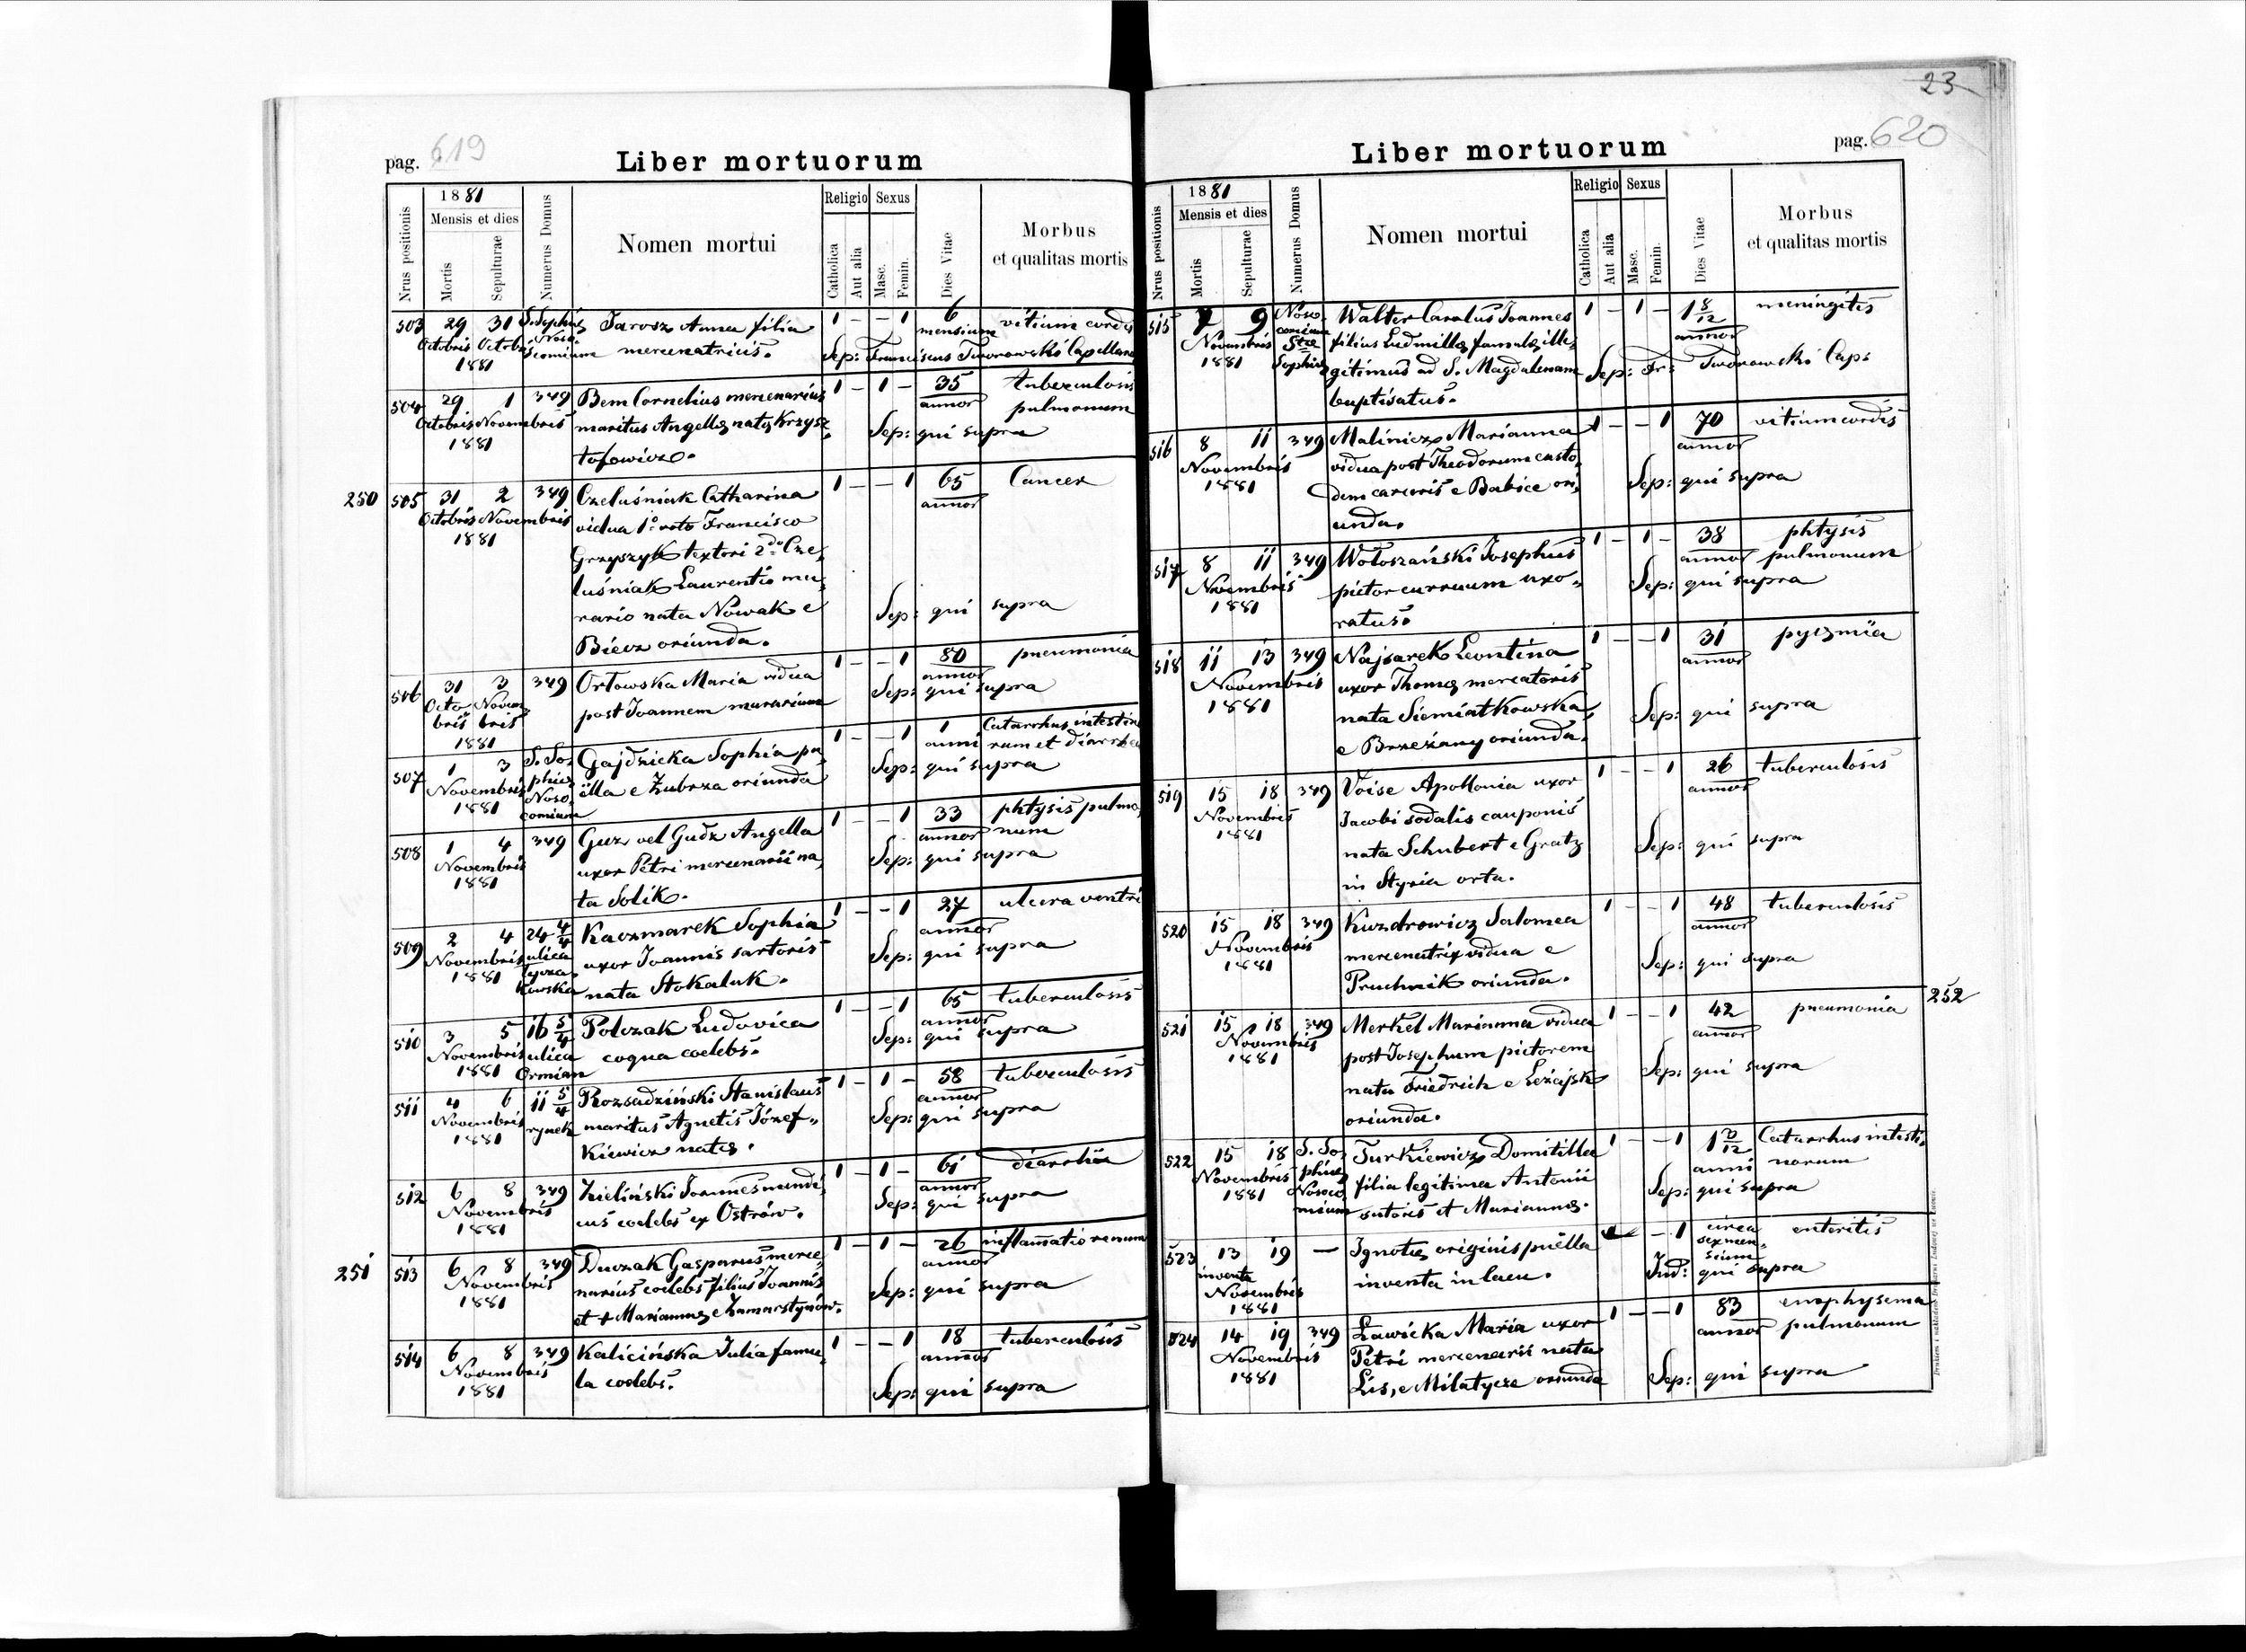 pag. 619
Liber mortuorum
Nrus positionis
1881
Mensis et dies
Mortis
Sepulturae
Numerus Domus
Nomen mortui
Religio
Catholica
Aut alia
Sexus
Masc.
Femin.
Dies Vitae
Morbus
et qualitas mortis
503 29 31 S. Sophiæ Jarosz Anna filia 1 – – 1 6 vitium cordis
Octobris Octobris Noso- mercenatricis. mensium
1881 comium Sep: Franciscus Tworowski Capellanus
504 29 1 349 Bem Cornelius mercenarius 1 – 1 – 35 tuberculosis
Octobris Novembris maritus Angellæ natæ Krzysz annor pulmonum
1881 tofowicz. Sep: qui supra
250 505 31 2 349 Czeluśniak Catharina 1 – – 1 65 Cancer
Octobris Novembris vidua 1º voto Francisco annor
1881 Grzyszyk textori 2do Cze-
luśniak Laurentio mu-
rario nata Nowak e Sep: qui supra
Biecz oriunda.
506 31 3 349 Orłowska Maria vidua 1 – – 1 80 pneumonia
Octo Novem post Joannem murarium annor
bris bris Sep: qui supra
1881
507 1 3 S. So- Gajdzicka Sophia pu 1 – – 1 1 Catarrhus intestino
Novembris phiæ ëlla e Zubrza oriunda anni rum et diarrhea
1881 Noso- Sep: qui supra
comium
508 1 4 349 Guz vel Gudz Angella 1 – – 1 33 phtysis pulmo
Novembris uxor Petri mercenarii na annor num
1881 ta Solik. Sep: qui supra
509 2 4 24 4/4 Kaczmarek Sophia 1 – – 1 27 ulcera ventri
Novembris ulica uxor Joannis sartoris annor
1881 Łycza- nata Stokaluk. Sep: qui supra
kowska
510 3 5 16 5/4 Polczak Ludovica 1 – – 1 65 tuberculosis
Novembris ulica coqua coelebs. annor
1881 Ormian Sep: qui supra
511 4 6 11 5/4 Rozsadziński Stanislaus 1 – 1 – 58 tuberculosis
Novembris rynek maritus Agnetis Józef- annor
1881 kiewicz natæ. Sep: qui supra
512 6 8 349 Zieliński Joannes mendi 1 – 1 – 61 diarrhöe
Novembris cus coelebs ex Ostrów. annor
1881 Sep: qui supra
251 513 6 8 349 Duczak Gasparus merce- 1 – 1 – 26 inflamatio renum
Novembris narius coelebs filius Joannis annor
1881 et + Mariannæ e Zamarstynów. Sep: qui supra
514 6 8 349 Kalicińska Julia famu- 1 – – 1 18 tuberculosis
Novembris la coelebs. annor
1881 Sep: qui supra
23
pag. 620
Liber mortuorum
Nrus positionis
1881
Mensis et dies
Mortis
Sepulturae
Numerus Domus
Nomen mortui
Religio
Catholica
Aut alia
Sexus
Masc.
Femin.
Dies Vitae
Morbus
et qualitas mortis
515 7 9 Noso- Walter Carolus Joannes 1 – 1 – 1 8/12 meningitis
Novembris comium filius Ludmillæ famulæ ille- annor
1881 Stæ Sophiæ gitimus ad S. Magdalenam Sep: Fr: Tworowski Cap:
baptisatus.
516 8 11 349 Malinicz Marianna 1 – – 1 70 vitium cordis
Novembris vidua post Theodorum custo- annor
1881 dem carceris e Babice ori- Sep: qui supra
unda.
517 8 11 349 Wołoszański Josephus 1 – 1 – 38 phtysis
Novembris pictor curruum uxo- annor pulmonum
1881 ratus. Sep: qui supra
518 11 13 349 Najsarek Leontina 1 – – 1 31 pyæmia
Novembris uxor Thomæ mercatoris annor
1881 nata Siemiatkowska, Sep: qui supra
e Brzeżany oriunda.
519 15 18 349 Voise Apollonia uxor 1 – – 1 26 tuberculosis
Novembris Jacobi sodalis cauponis annor
1881 nata Schubert e Gratz Sep: qui supra
in Styria orta.
520 15 18 349 Kuzdrowicz Salomea 1 – – 1 48 tuberculosis
Novembris mercenatrix vidua e annor
1881 Pruchnik oriunda. Sep: qui supra
521 15 18 349 Merkel Marianna vidua 1 – – 1 42 pneumonia 252
Novembris post Josephum pictorem annor
1881 nata Friedrich e Leżajsk Sep: qui supra
oriunda.
522 15 18 S. So- Turkiewicz Domitilla 1 – – 1 Catarrhus intesti-
Novembris phiæ filia legitima Antonii anni norum
1881 Nosoco- sutoris et Mariannæ. Sep: qui supra
mium
523 13 19 — Ignotæ originis puëlla – 1 circa enteritis
inventa inventa in lacu. sex men-
Novembris sium
1881 Ind: qui supra
524 14 19 349 Ławicka Maria uxor 1 – – 1 83 emphysema
Novembris Petri mercenarii nata annor pulmonum
1881 Lis, e Milatycze oriunda Sep: qui supra